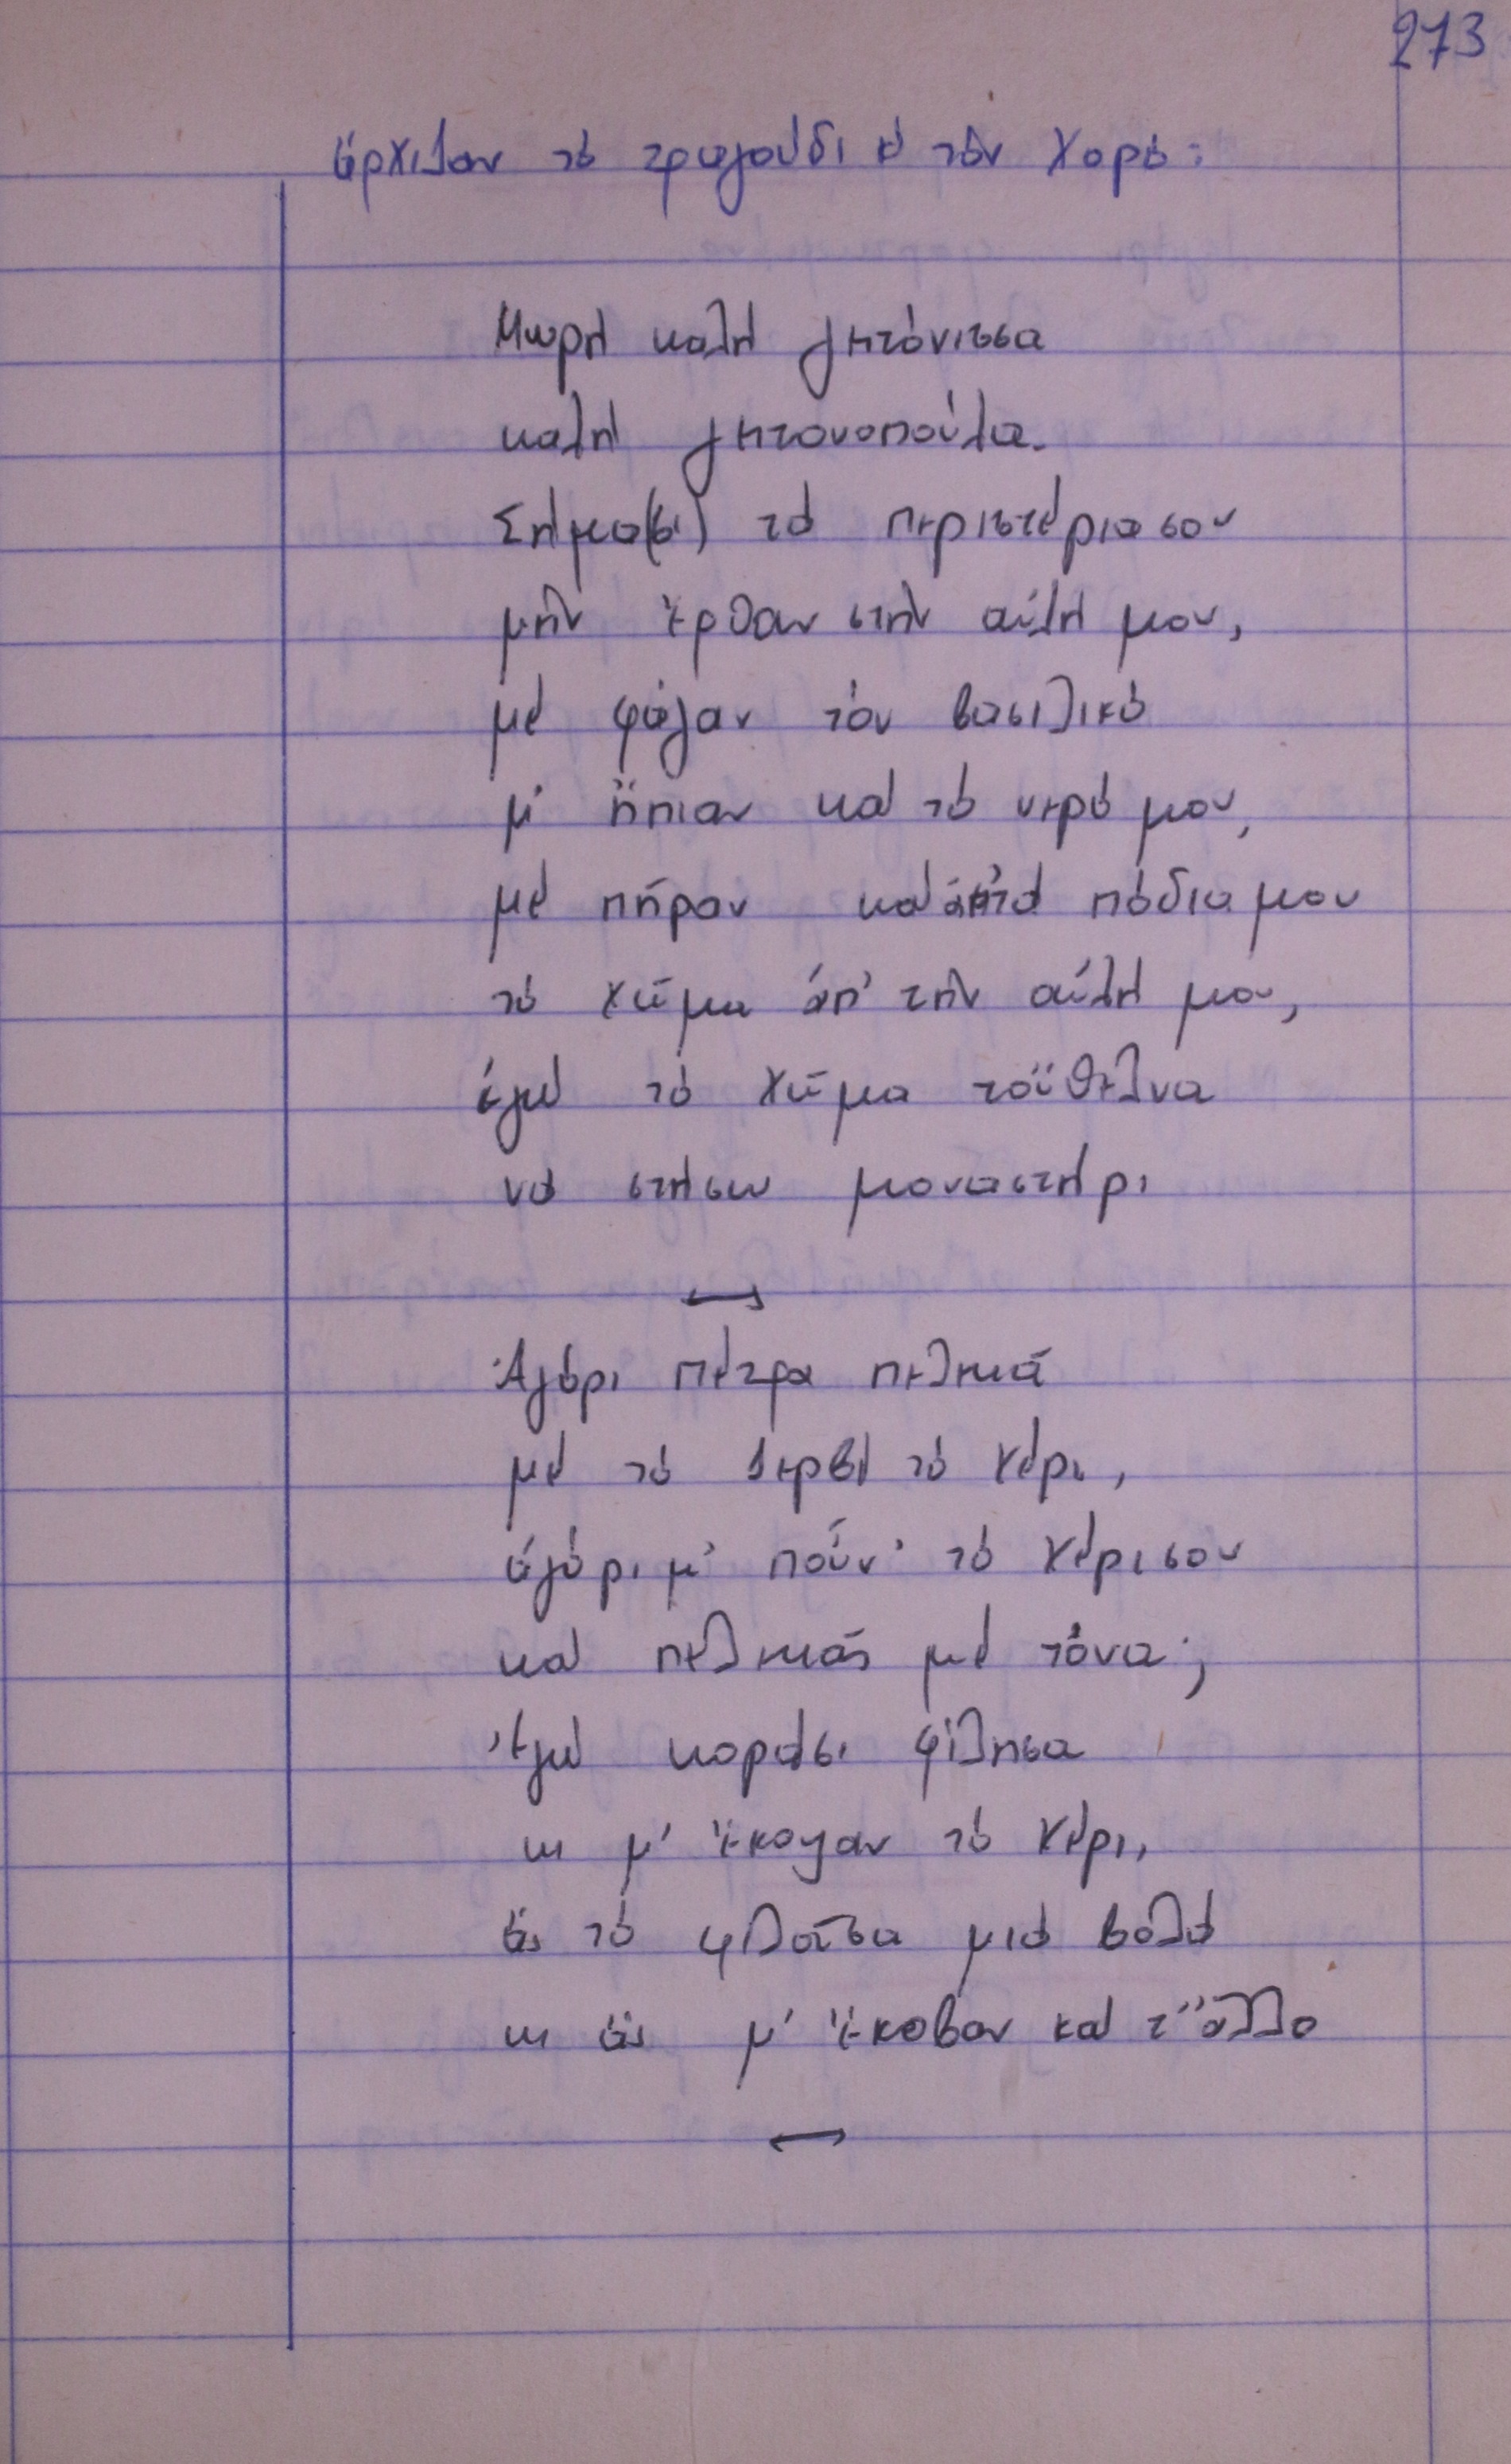 273
ἄρχιζαν τό τραγούδι κ τόν χορό:
Μωρή καλή γειτόνισσα
καλή γειτονοπούλα.
Σήμα(σι) τά περιστέρια σου
μήν ἔρθαν στήν αὐλή μου,
μέ φάγαν τόν βασιλικό
μ' ἤπιαν καί τό νερό μου,
μέ πῆραν καί ἀπ'τά πόδια μου
τό χῶμα ἀπ' τήν αὐλή μου,
ἐγώ τό χῶμα τοὔθελνα
νά στήσω μοναστήρι
Ἀγόρι πέτρα πελεκᾶ
μέ τό ζερβί τό χέρι,
ἀγόρι μ' ποὖν' τό χέρι σου
καί πελεκᾶς μέ τόνα;
Ἐγώ κοράσι φίλησα
κι μ' ἔκοψαν τό χέρι,
ἄς τό φιλοῦσα μιά βολά
κι ἄς μ' ἔκοβαν καί τ' ἄλλο